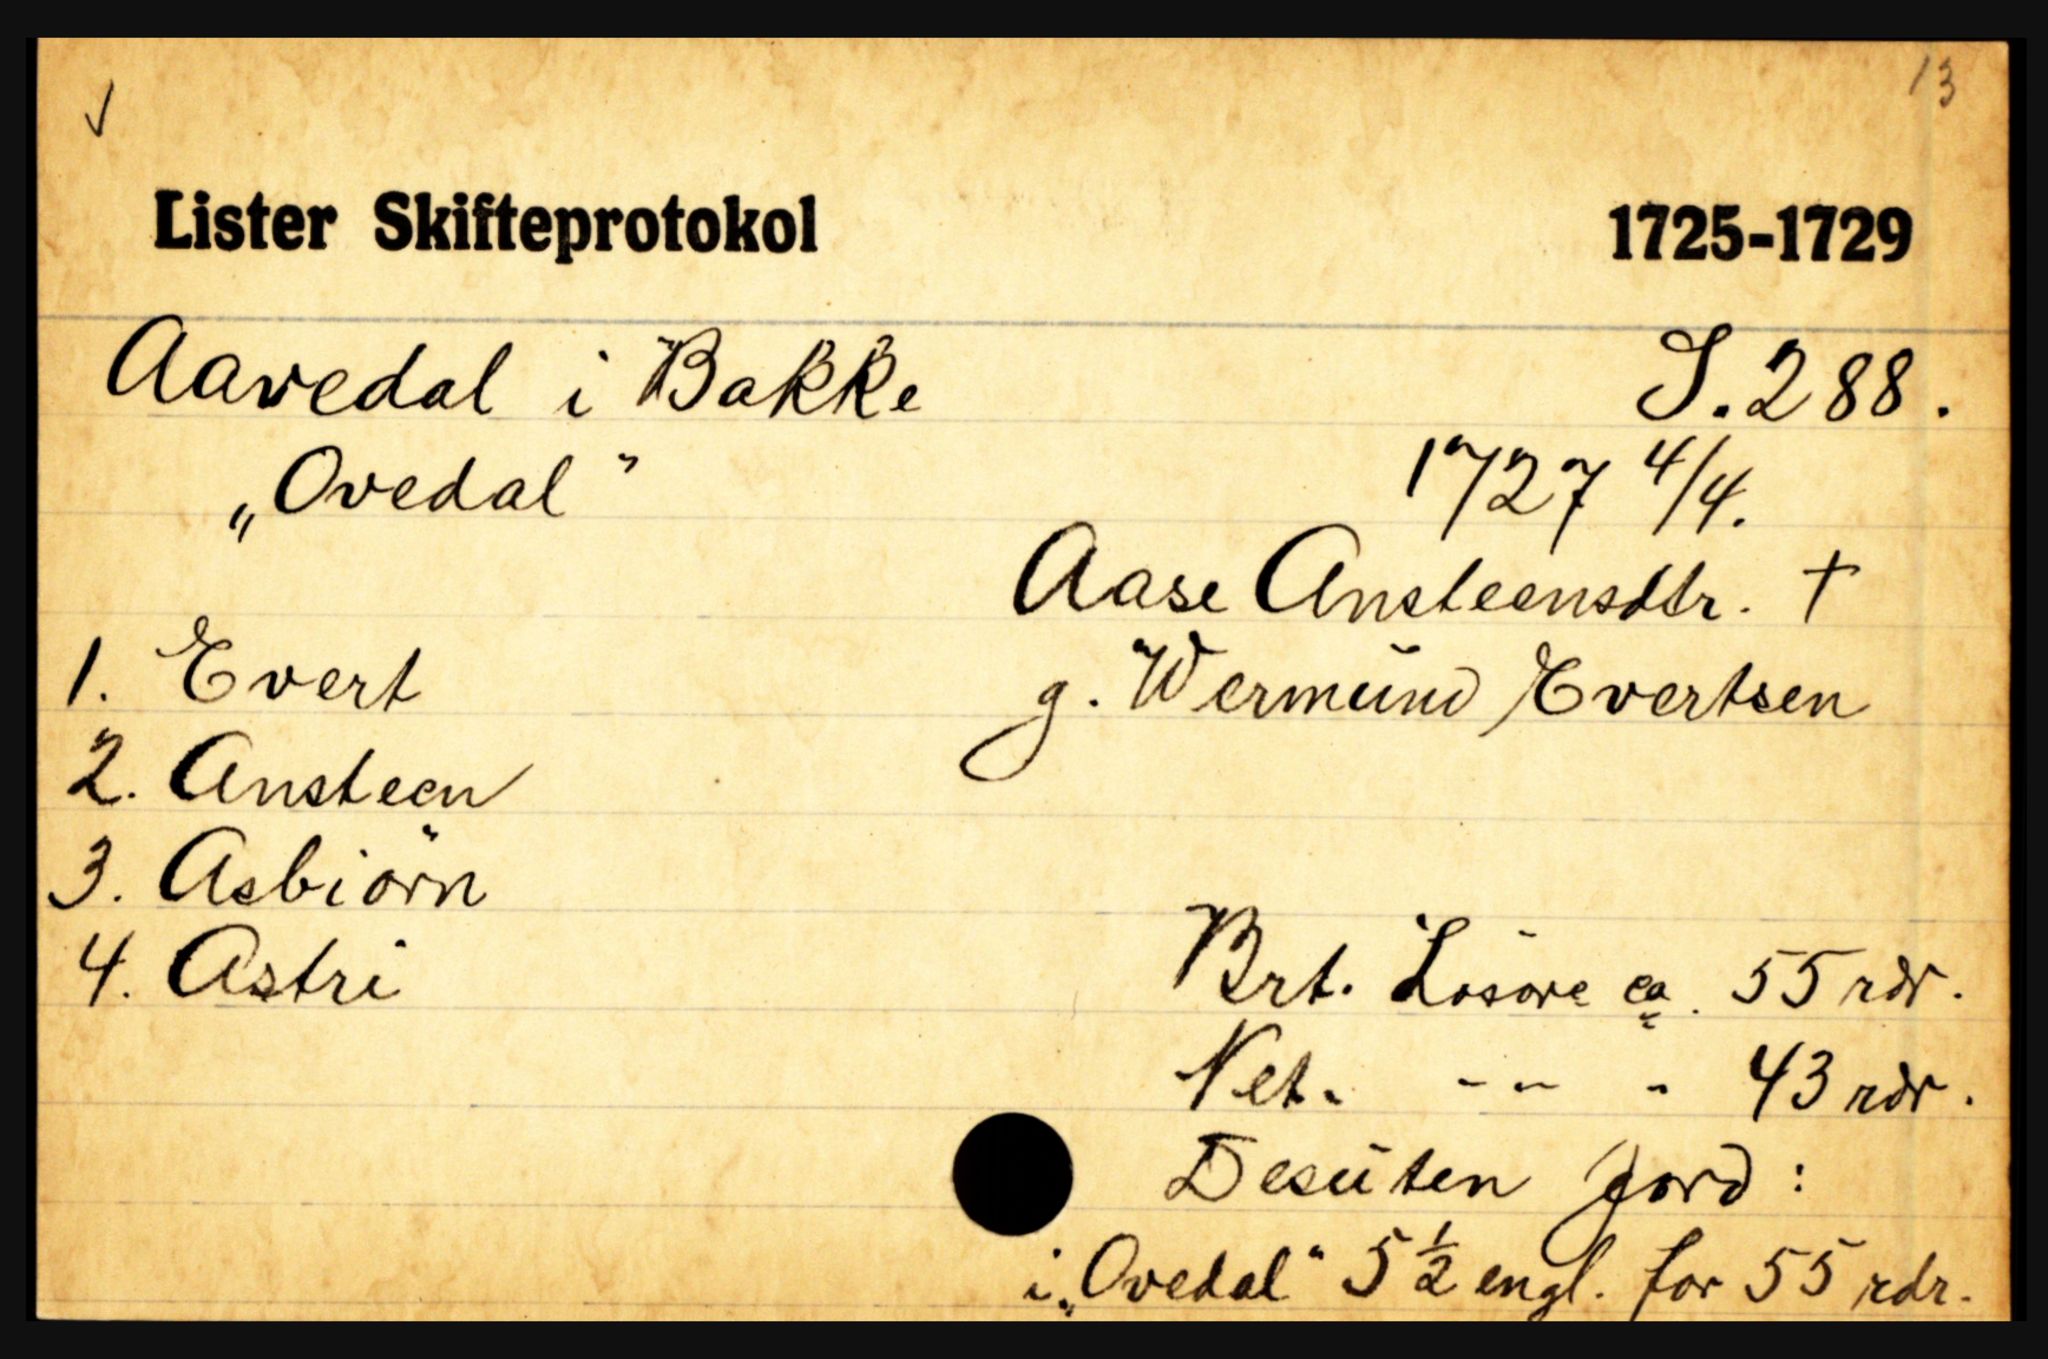 ✓ 13
Lister Skifteprotokol 1725-1729
Aavedal i Bakke S. 288.
„Ovedal" 1727 4/4.
Aase Ansteensdtr. †
1. Evert g. Wermund Evertsen
2. Ansteen
3. Asbiörn
4. Astri Brt. Løsøre ca. 55 rdr.
Net. - - - 43 rdr.
Desuten jord:
i „Ovedal" 5 ½ engl. for 55 rdr.